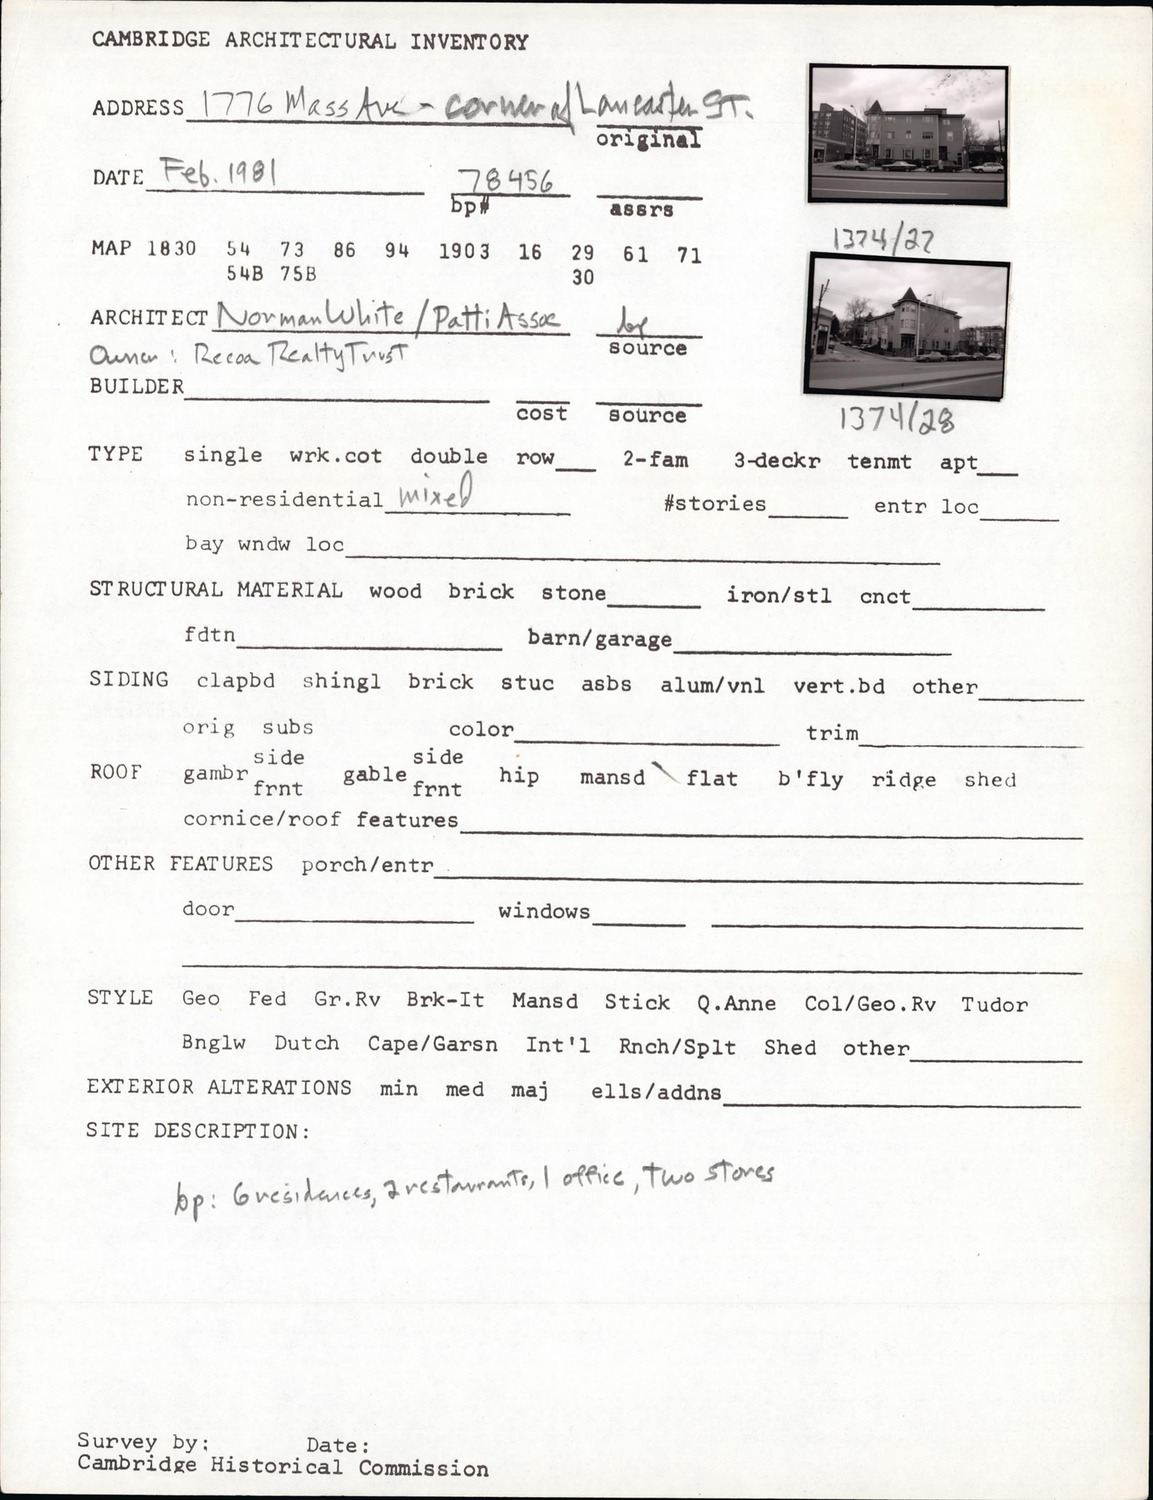 CAMBRIDGE ARCHITECTURAL INVENTORY
ADDRESS 1776 Mass Ave - corner of Lancaster ST.
original
DATE Feb. 1981 78456
bp# assrs
1374/27
MAP 1830 54 73 86 94 1903 16 29 61 71
54B 75B 30
ARCHITECT Norman White / Patti Assoc bp
source
Owner: Recoa Realty Trust
BUILDER
cost source
1374/28
TYPE single wrk.cot double row 2-fam 3-deckr tenmt apt
non-residential mixed #stories entr loc
bay wndw loc
STRUCTURAL MATERIAL wood brick stone iron/stl cnct
fdtn barn/garage
SIDING clapbd shingl brick stuc asbs alum/vnl vert.bd other
orig subs color trim
ROOF gambr side frnt gable side frnt hip mansd flat b'fly ridge shed
cornice/roof features
OTHER FEATURES porch/entr
door windows
STYLE Geo Fed Gr.Rv Brk-It Mansd Stick Q.Anne Col/Geo.Rv Tudor
Bnglw Dutch Cape/Garsn Int'l Rnch/Splt Shed other
EXTERIOR ALTERATIONS min med maj ells/addns
SITE DESCRIPTION:
bp: 6 residences, 2 restaurants, 1 office, two stores
Survey by: Date:
Cambridge Historical Commission